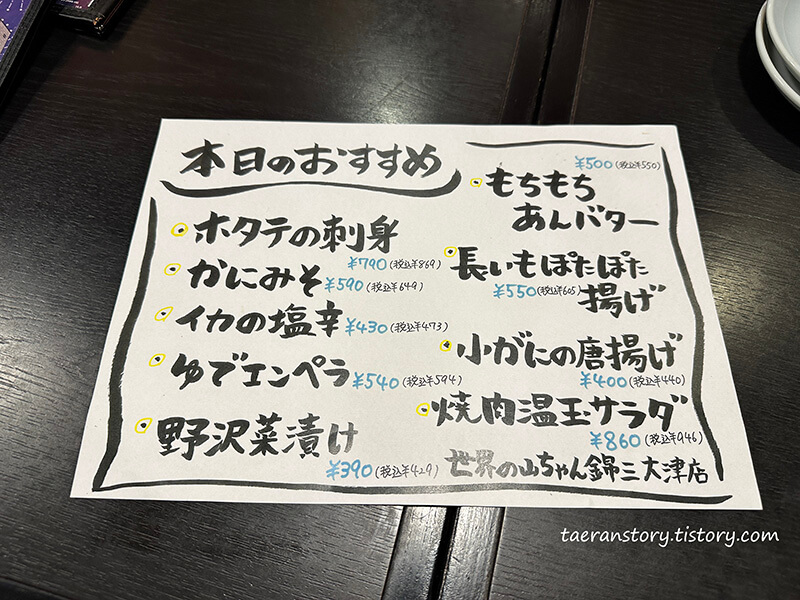 本日のおすすめ
ホタテの刺身
¥790(税込¥869)
かにみそ¥590(税込¥649)
イカの塩辛¥430(税込¥473)
ゆでエンペラ¥540(税込¥594)
野沢菜漬け
¥390(税込¥429)
¥500(税込550)
もちもち
あんバター
長いもぽたぽた
¥550(税込605)揚げ
小がにの唐揚げ
¥400(税込¥440)
焼肉温玉サラダ
¥860(税込¥946)
世界の山ちゃん錦三大津店
taeranstory.tistory.com